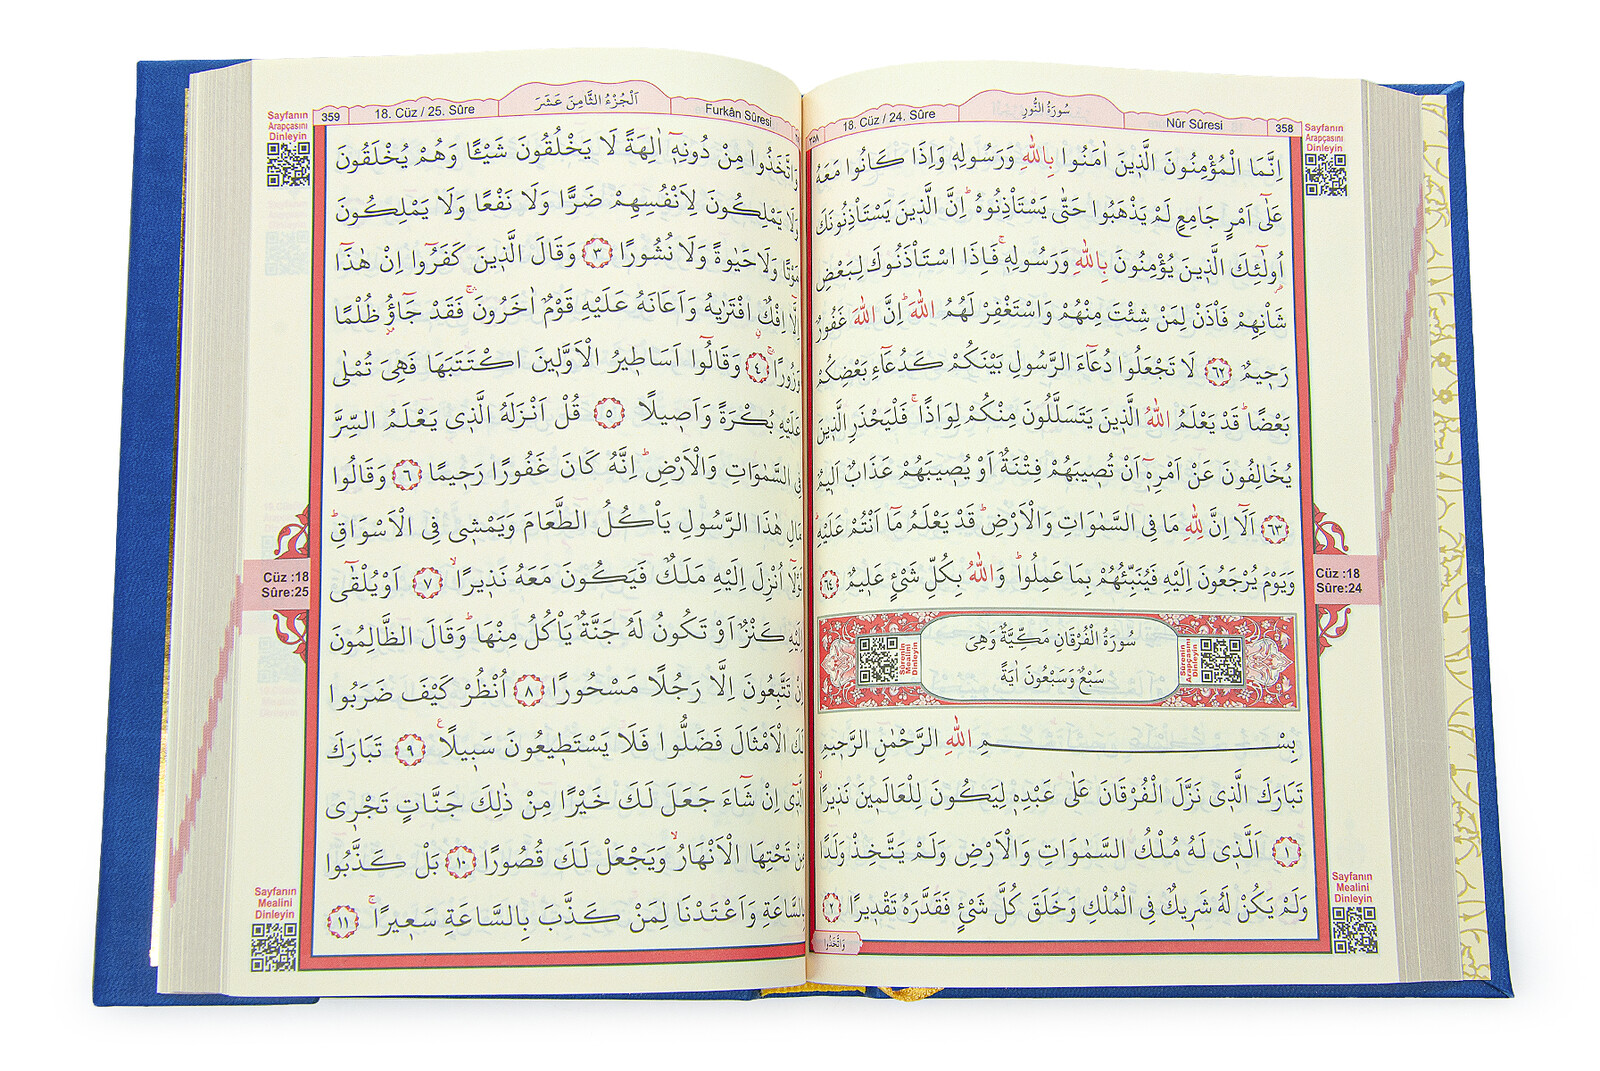 سُورَةُ النُّورِ
18. Cüz / 24. Sûre
Nûr Sûresi
358
Sayfanın
Arapçasını
Dinleyin
اِنَّمَا الْمُؤْمِنُونَ الَّذ۪ينَ اٰمَنُوا بِاللّٰهِ وَرَسُولِه۪ وَاِذَا كَانُوا مَعَهُ
عَلٰٓى اَمْرٍ جَامِعٍ لَمْ يَذْهَبُوا حَتّٰى يَسْتَأْذِنُوهُۜ اِنَّ الَّذ۪ينَ يَسْتَأْذِنُونَكَ
اُو۬لٰٓئِكَ الَّذ۪ينَ يُؤْمِنُونَ بِاللّٰهِ وَرَسُولِه۪ۚ فَاِذَا اسْتَأْذَنُوكَ لِبَعْضِ
شَأْنِهِمْ فَأْذَنْ لِمَنْ شِئْتَ مِنْهُمْ وَاسْتَغْفِرْ لَهُمُ اللّٰهَۜ اِنَّ اللّٰهَ غَفُورٌ
رَح۪يمٌ ﴿٦٢﴾ لَا تَجْعَلُوا دُعَٓاءَ الرَّسُولِ بَيْنَكُمْ كَدُعَٓاءِ بَعْضِكُمْ
بَعْضًاۜ قَدْ يَعْلَمُ اللّٰهُ الَّذ۪ينَ يَتَسَلَّلُونَ مِنْكُمْ لِوَاذًاۚ فَلْيَحْذَرِ الَّذ۪ينَ
يُخَالِفُونَ عَنْ اَمْرِه۪ٓ اَنْ تُص۪يبَهُمْ فِتْنَةٌ اَوْ يُص۪يبَهُمْ عَذَابٌ اَل۪يمٌ
﴿٦٣﴾ اَلَٓا اِنَّ لِلّٰهِ مَا فِي السَّمٰوَاتِ وَالْاَرْضِۜ قَدْ يَعْلَمُ مَٓا اَنْتُمْ عَلَيْهِۜ
وَيَوْمَ يُرْجَعُونَ اِلَيْهِ فَيُنَبِّئُهُمْ بِمَا عَمِلُواۜ وَاللّٰهُ بِكُلِّ شَيْءٍ عَل۪يمٌ ﴿٦٤﴾
Cüz :18
Sûre:24
سُورَةُ الْفُرْقَانِ مَكِّيَّةٌ وَهِيَ
سَبْعٌ وَسَبْعُونَ اٰيَةً
Sûrenin
Arapçasını
Dinleyin
Sûrenin
Mealini
Dinleyin
بِسْمِ اللّٰهِ الرَّحْمٰنِ الرَّح۪يمِ
تَبَارَكَ الَّذ۪ي نَزَّلَ الْفُرْقَانَ عَلٰى عَبْدِه۪ لِيَكُونَ لِلْعَالَم۪ينَ نَذ۪يرًاۙ
﴿١﴾ اَلَّذ۪ي لَهُ مُلْكُ السَّمٰوَاتِ وَالْاَرْضِ وَلَمْ يَتَّخِذْ وَلَدًا
وَلَمْ يَكُنْ لَهُ شَر۪يكٌ فِي الْمُلْكِ وَخَلَقَ كُلَّ شَيْءٍ فَقَدَّرَهُ تَقْد۪يرًا ﴿٢﴾
وَاتَّخَذُوا
Sayfanın
Mealini
Dinleyin
اَلْجُزْءُ الثَّامِنَ عَشَرَ
359
18. Cüz / 25. Sûre
Furkân Sûresi
Sayfanın
Arapçasını
Dinleyin
وَاتَّخَذُوا مِنْ دُونِه۪ٓ اٰلِهَةً لَا يَخْلُقُونَ شَيْـًٔا وَهُمْ يُخْلَقُونَ
وَلَا يَمْلِكُونَ لِاَنْفُسِهِمْ ضَرًّا وَلَا نَفْعًا وَلَا يَمْلِكُونَ
مَوْتًا وَلَا حَيٰوةً وَلَا نُشُورًا ﴿٣﴾ وَقَالَ الَّذ۪ينَ كَفَرُٓوا اِنْ هٰذَٓا
اِلَّٓا اِفْكٌۨ افْتَرٰيهُ وَاَعَانَهُ عَلَيْهِ قَوْمٌ اٰخَرُونَۚۛ فَقَدْ جَٓاؤُ۫ ظُلْمًا
وَزُورًاۚۛ ﴿٤﴾ وَقَالُٓوا اَسَاط۪يرُ الْاَوَّل۪ينَ اكْتَتَبَهَا فَهِيَ تُمْلٰى
عَلَيْهِ بُكْرَةً وَاَص۪يلًا ﴿٥﴾ قُلْ اَنْزَلَهُ الَّذ۪ي يَعْلَمُ السِّرَّ
فِي السَّمٰوَاتِ وَالْاَرْضِۜ اِنَّهُ كَانَ غَفُورًا رَح۪يمًا ﴿٦﴾ وَقَالُوا
مَالِ هٰذَا الرَّسُولِ يَأْكُلُ الطَّعَامَ وَيَمْش۪ي فِي الْاَسْوَاقِۜ
لَوْلَٓا اُنْزِلَ اِلَيْهِ مَلَكٌ فَيَكُونَ مَعَهُ نَذ۪يرًاۙ ﴿٧﴾ اَوْ يُلْقٰٓى
اِلَيْهِ كَنْزٌ اَوْ تَكُونُ لَهُ جَنَّةٌ يَأْكُلُ مِنْهَاۜ وَقَالَ الظَّالِمُونَ
اِنْ تَتَّبِعُونَ اِلَّا رَجُلًا مَسْحُورًا ﴿٨﴾ اُنْظُرْ كَيْفَ ضَرَبُوا
لَكَ الْاَمْثَالَ فَضَلُّوا فَلَا يَسْتَط۪يعُونَ سَب۪يلًا۟ ﴿٩﴾ تَبَارَكَ
الَّذ۪ٓي اِنْ شَٓاءَ جَعَلَ لَكَ خَيْرًا مِنْ ذٰلِكَ جَنَّاتٍ تَجْر۪ي
مِنْ تَحْتِهَا الْاَنْهَارُۙ وَيَجْعَلْ لَكَ قُصُورًا ﴿١٠﴾ بَلْ كَذَّبُوا
بِالسَّاعَةِ وَاَعْتَدْنَا لِمَنْ كَذَّبَ بِالسَّاعَةِ سَع۪يرًاۚ ﴿١١﴾
Cüz :18
Sûre:25
Sayfanın
Mealini
Dinleyin